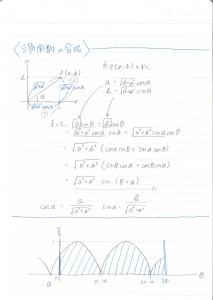 〈三角関数の合成〉
P(a, b)
a = √a²+b² cosα
b = √a²+b² sinα
a sinθ + b cosθ
= √a²+b² cosα sinθ + √a²+b² sinα cosθ
= √a²+b² (cosα sinθ + sinα cosθ)
= √a²+b² (sinθ cosα + cosθ sinα)
= √a²+b² sin (θ+α)
cosα = a/√a²+b² sinα = b/√a²+b²
1
-α π-α 2π-α 2π θ